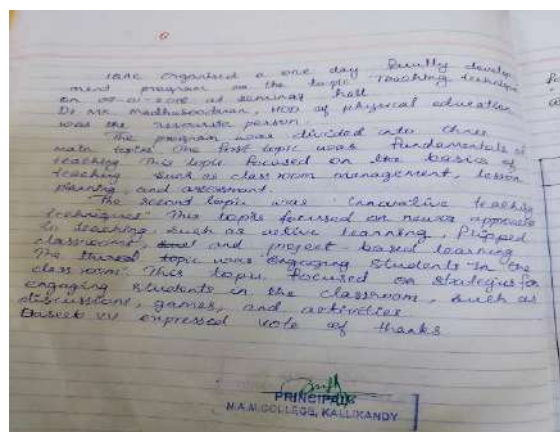 6
IQAC organised a one day faculty develop
ment program on the topic "Teaching technique
on 08-01-2018 at seminar hall
Dr MK Madhusoodanan, HOD of physical education
was the resource person.
The program was divided into three
main topics. One first topic was fundamentals of
teaching. This topic focused on the basics of
teaching such as classroom management, lesson
planning, and assessment.
The second topic was "innovative teaching
techniques". This topic focused on newer approaches
to teaching, such as active learning, flipped
classrooms, and project-based learning
The third topic was "engaging students in the
classroom". This topic focused on strategies for
engaging students in the classroom, such as
discussions, games, and activities.
VV expressed vote of thanks
PRINCIPAL
N.A.M.COLLEGE, KALLIKANDY